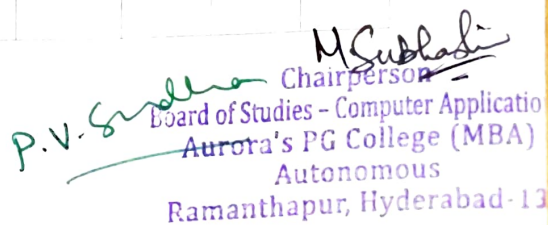 M. Subhashi
P.V. Sudha
Chairperson
Board of Studies – Computer Applicatio
Aurora's PG College (MBA)
Autonomous
Ramanthapur, Hyderabad-13